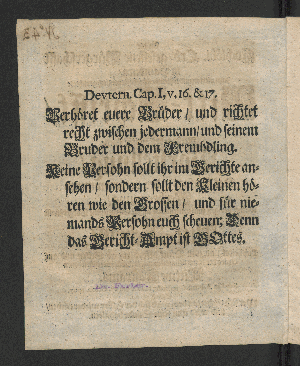 N° 43
Devtern. Cap. I, v. 16. & 17.
Verhöret euere Brüder / und richtet
recht zwischen jedermann / und seinem
Bruder und dem Frembdling.
Keine Persohn sollt ihr im Gerichte an-
sehen / sondern sollt den Kleinen hö-
ren wie den Grossen / und für nie-
mands Persohn euch scheuen: Denn
das Gericht-Ampt ist GOttes.